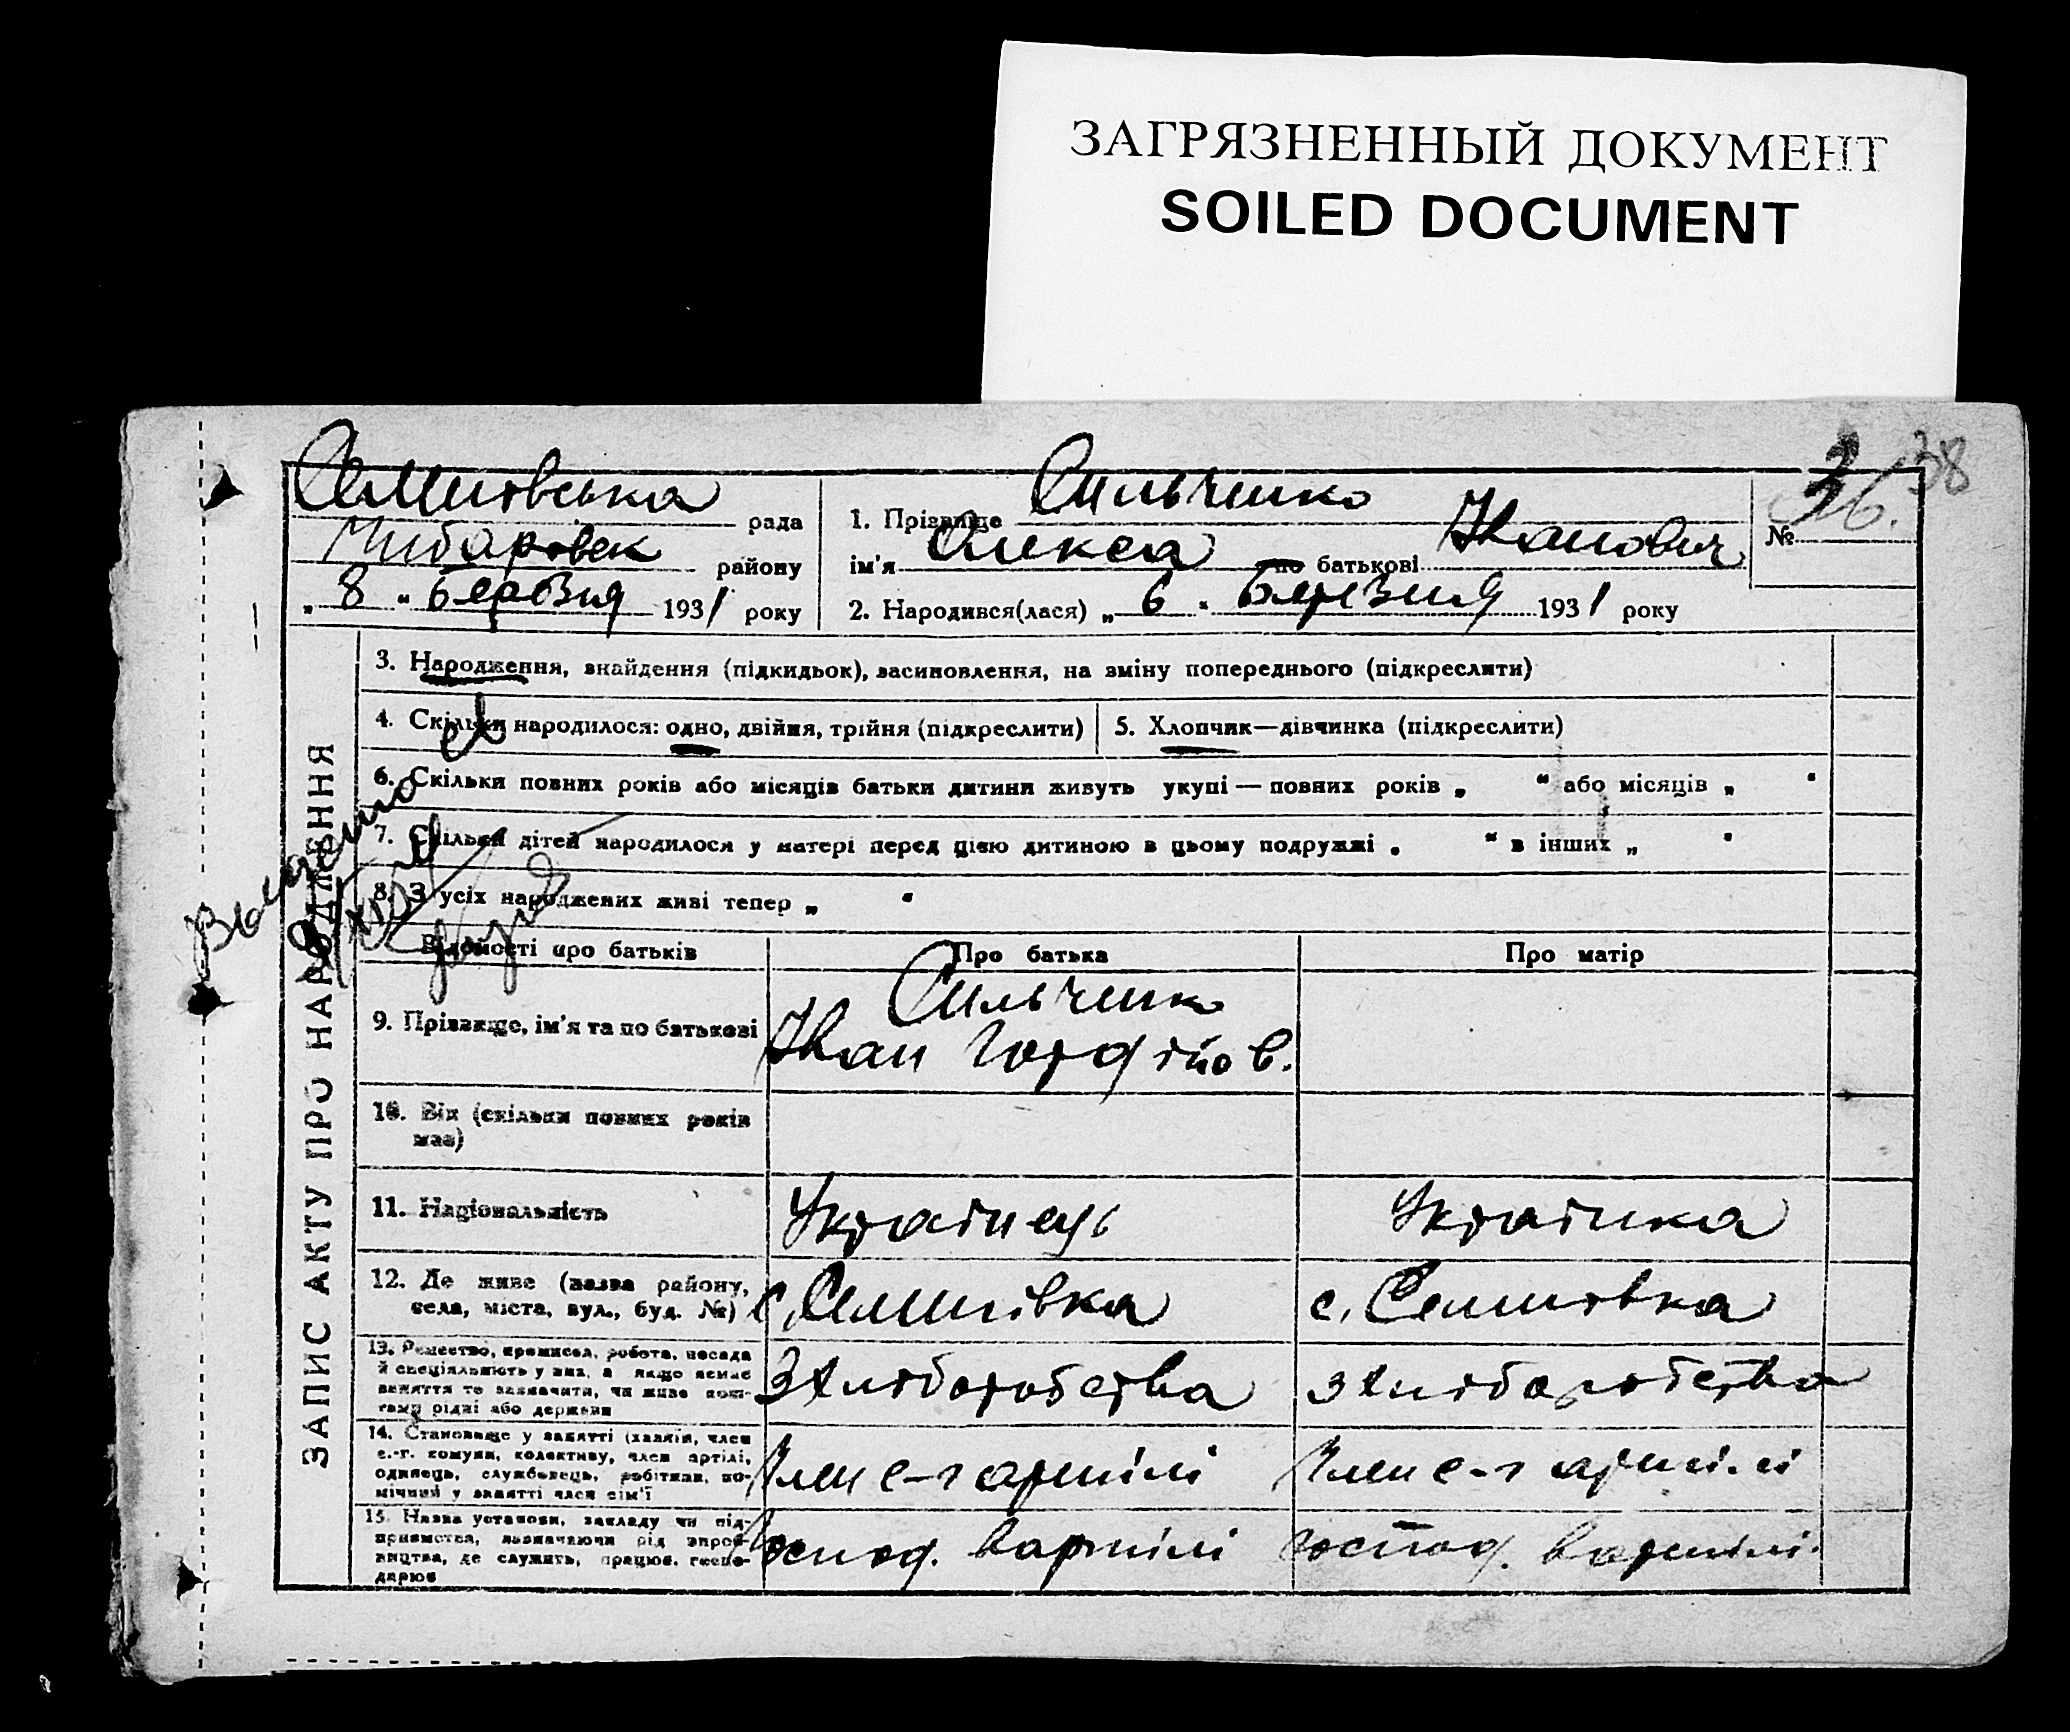 ЗАГРЯЗНЕННЫЙ ДОКУМЕНТ
SOILED DOCUMENT
38
рада
району
„ 8 “ Березня 1931 року
1. Прізвище Сильченко
ім'я Олекса по батькові Иванович
2. Народився(лася) „ 6 “ Березня 1931 року
№ 36.
ЗАПИС АКТУ ПРО НАРОДЖЕННЯ
3. Народження, знайдення (підкидьок), засиновлення, на зміну попереднього (підкреслити)
4. Скільки народилося: одно, двійня, трійня (підкреслити)
5. Хлопчик—дівчинка (підкреслити)
6. Скільки повних років або місяців батьки дитини живуть укупі — повних років „ “ або місяців „ “
7. Скільки дітей народилося у матері перед цією дитиною в цьому подружжі „ “ в інших „ “
8. З усіх народжених живі тепер „ “
Відомості про батьків
Про батька
Про матір
9. Прізвище, ім'я та по батькові
Сильченко
Иван
10. Вік (скільки повних років
має)
11. Національність
Українець
Українка
12. Де живе (назва району,
села, міста, вул., буд. №)
с. Семинівка
с. Семиновка
13. Ремество, промисел, робота, посада
й спеціяльність у них, а якщо немає
заняття то зазначити, чи живе кош-
тами рідні або держави
З хліборобства
з хліборобства
14. Становище у занятті (хазяїн, член
с.-г. комуни, колективу, член артілі,
одинець, службовець, робітник, по-
мічний у занятті член сім'ї
Член с-г артілі
Член с-г артілі
15. Назва установи, закладу чи під-
приємства, зазначаючи рід вироб-
ництва, де служить, працює, госпо-
дарює
Господ. в артілі
господ. в артілі